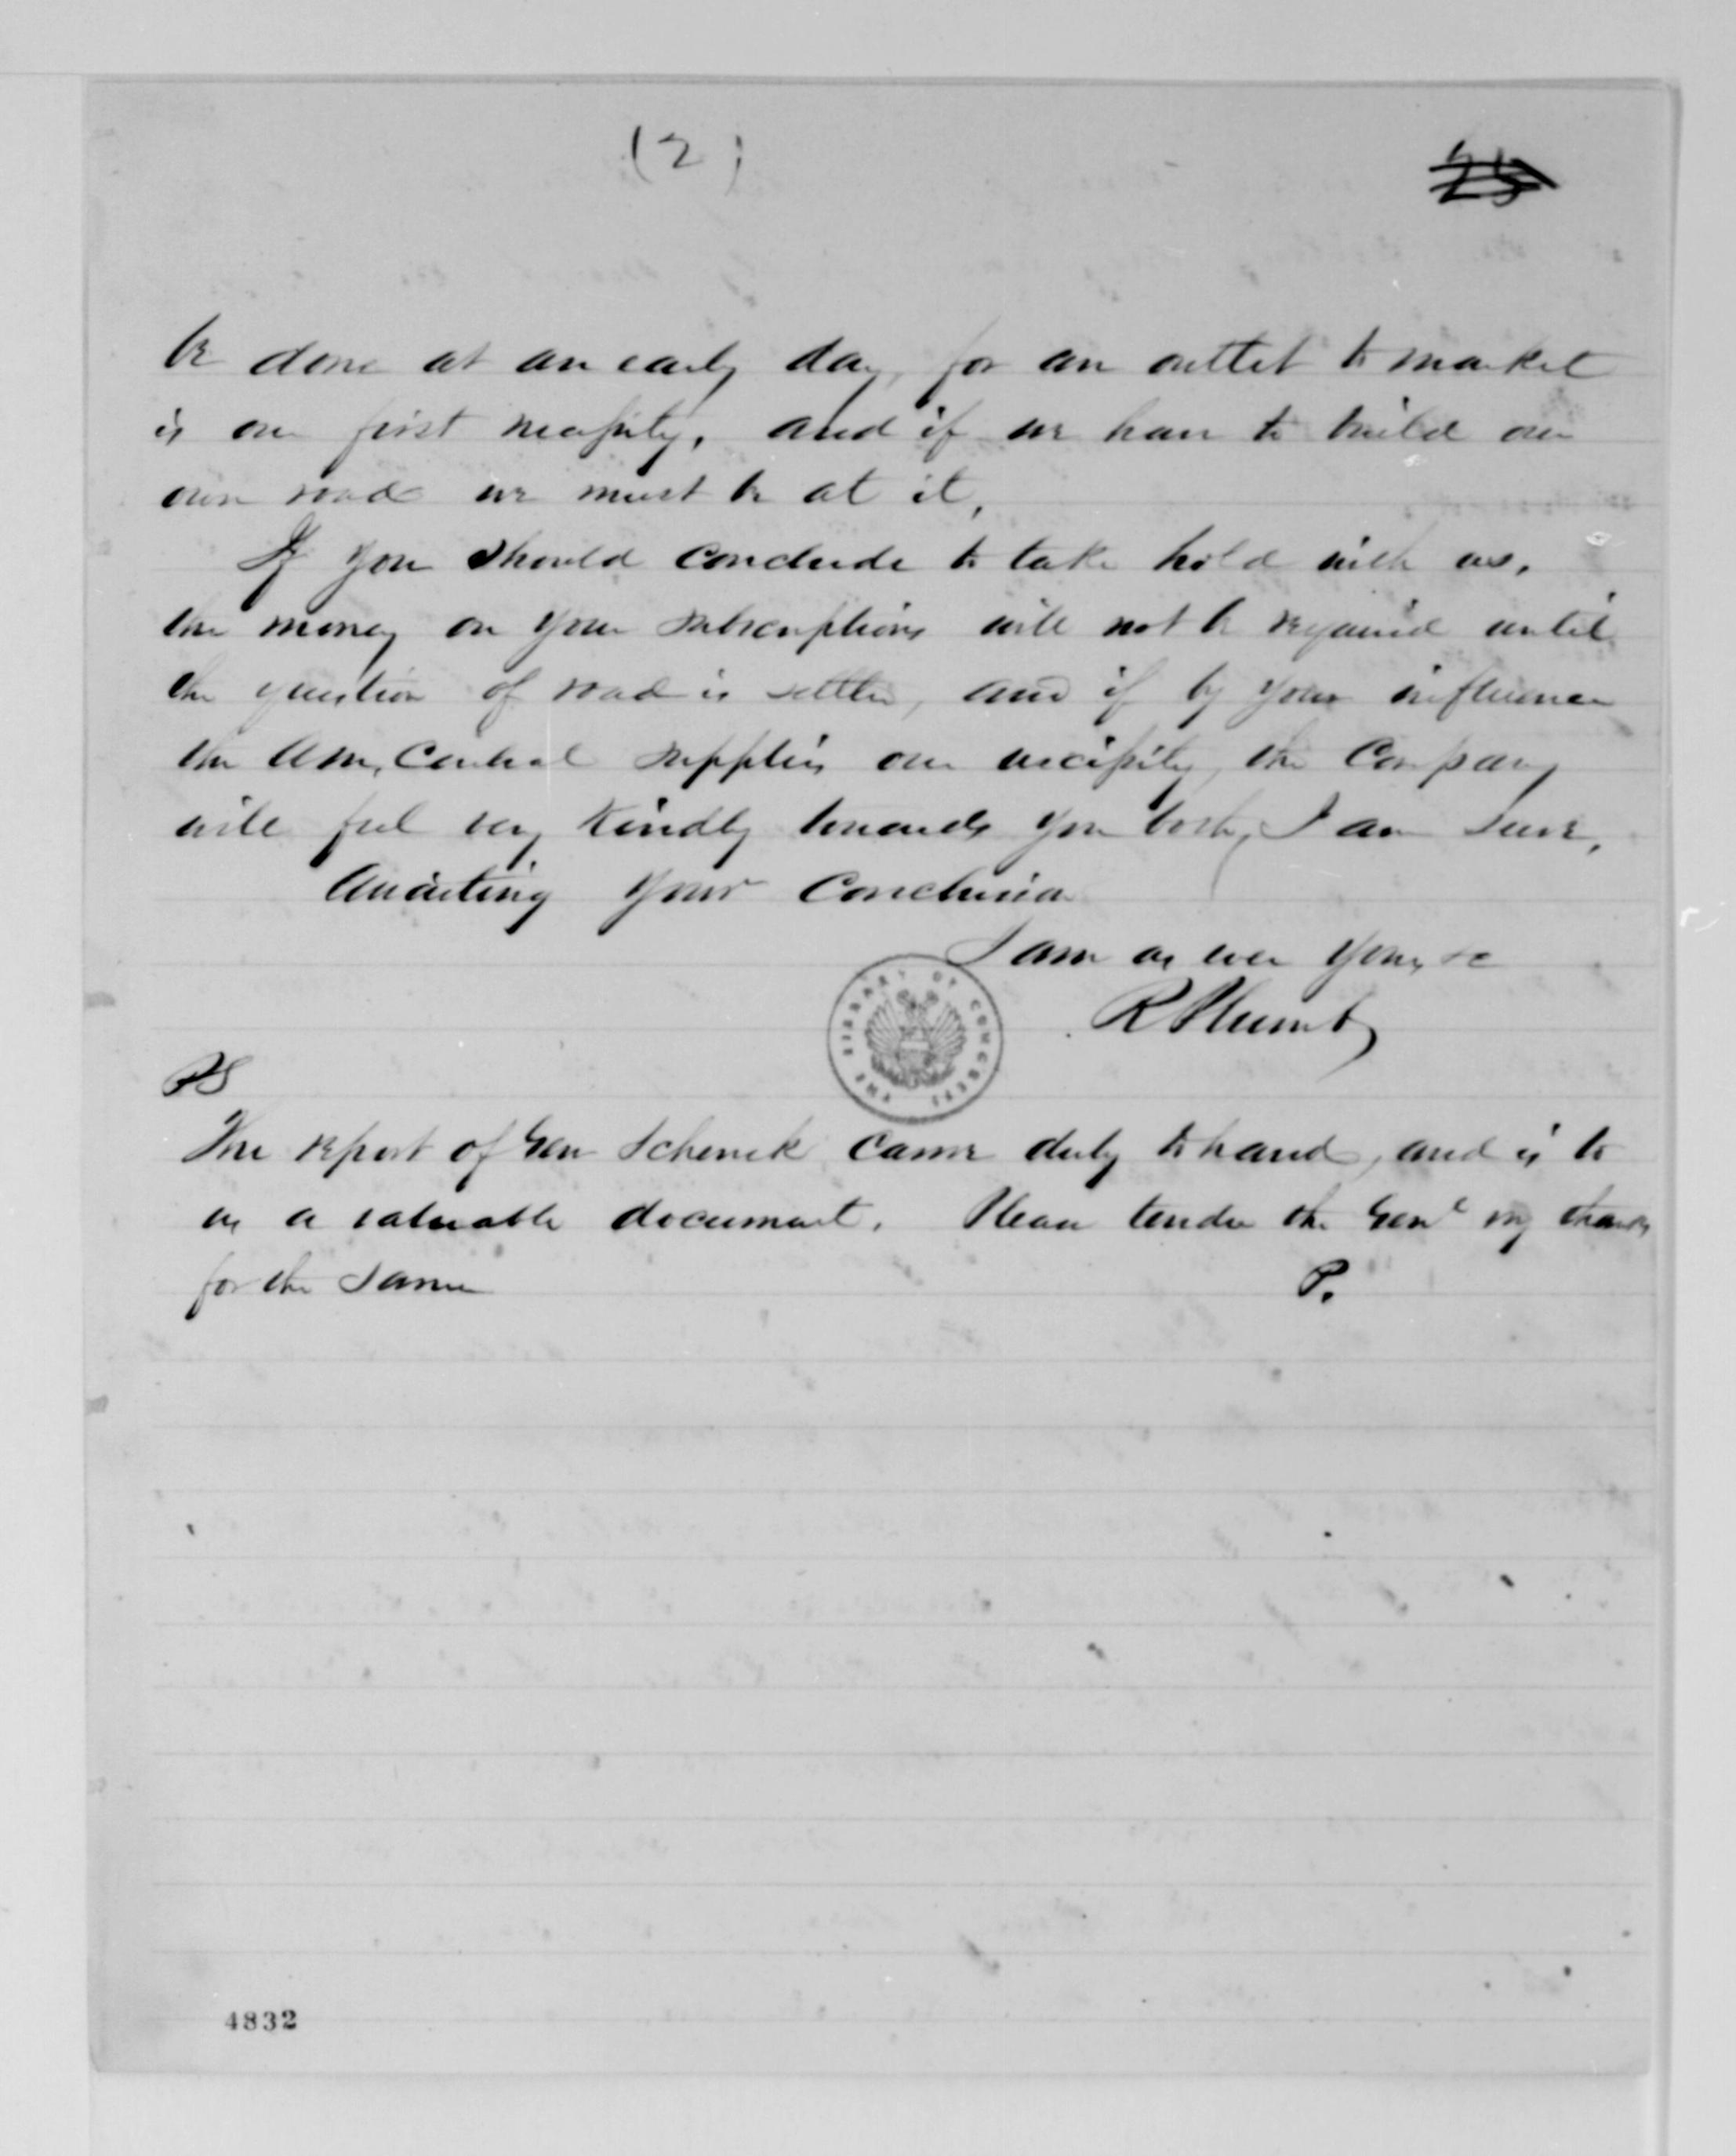 (2)
be done at an early day, for an outlet to market
is our first necessity, and if we have to build our
own road we must be at it,
If you should conclude to take hold with us,
the money on your subscriptions will not be required until
the question of road is settled, and if by your influence
the Am, Central supplies our necessity, the Company
will feel very kindly towards you both, I am sure,
Awaiting your conclusion
I am as ever yours &c
R Plumb
THE LIBRARY OF CONGRESS
PS
The report of Gen Schenck came duly to hand, and is to
us a valuable document. Please tender the Genl my thanks
for the same
P.
4832